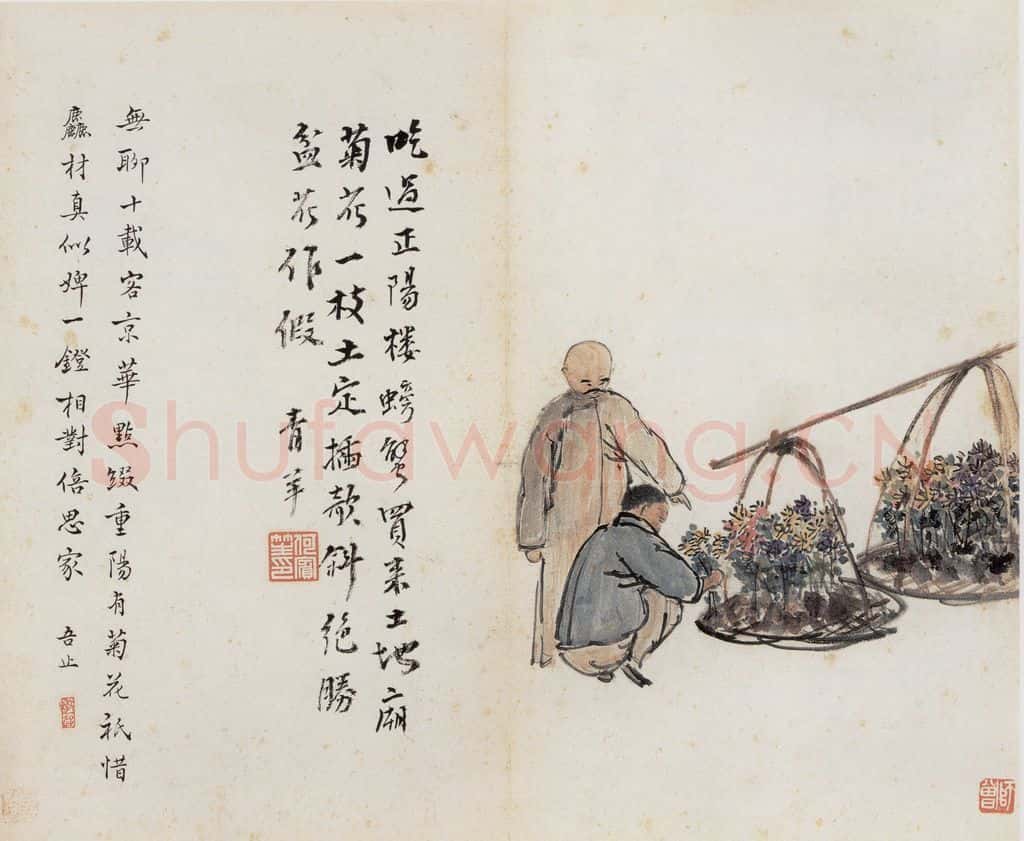 吃過正陽楼螃蟹買来土地廟
菊花一枝土定插欹斜絶勝
盆花作假
青羊
何賓笙印
無聊十載客京華點綴重陽有菊花祇惜
麤材真似婢一鐙相對倍思家
吾止
師曾
Shufawang.CN